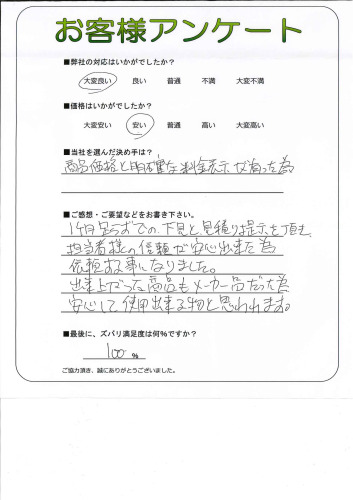 お客様アンケート
■弊社の対応はいかがでしたか？
大変良い 良い 普通 不満 大変不満
■価格はいかがでしたか？
大変安い 安い 普通 高い 大変高い
■当社を選んだ決め手は？
商品価格と明確な料金表示が有った為
■ご感想・ご要望などをお書き下さい。
1ヶ月足らずでの下見と見積り提示を頂き、
担当者様の信頼が安心出来た為
依頼する事になりました。
出来上がった商品もメーカー品だった為
安心して使用出来る物と思われます。
■最後に、ズバリ満足度は何％ですか？
100 %
ご協力頂き、誠にありがとうございました。